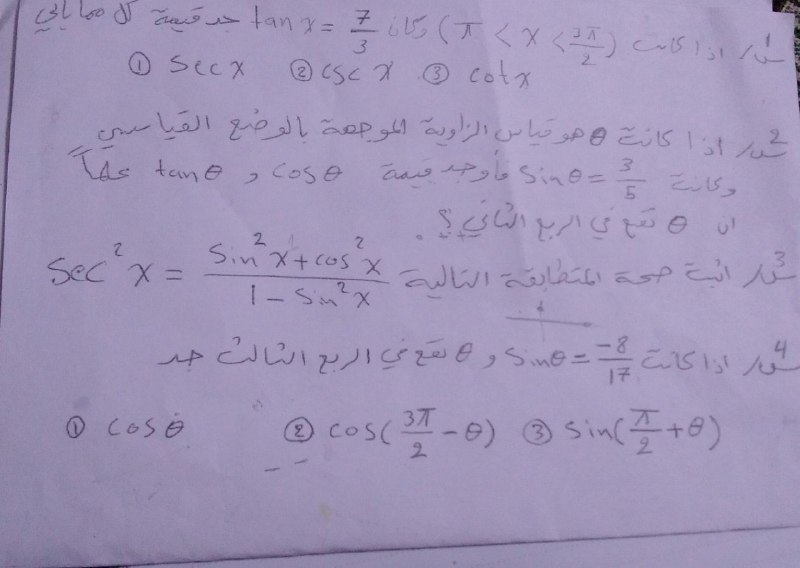 س1/ اذا كانت (π < x < 3π/2) وكان tan x = 7/3 جد قيمة كل مما يأتي
① sec x ② csc x ③ cot x
س2/ اذا كانت θ هو قياس الزاوية الموجهة بالوضع القياسي
وكانت sinθ = 3/5 فأوجد قيمة cosθ و tanθ علماً
ان θ تقع في الربع الثاني ؟
س3/ اثبت صحة المتطابقة التالية sec²x = (sin²x + cos²x)/(1 - sin²x)
س4/ اذا كانت sinθ = -8/17 و θ تقع في الربع الثالث جد
① cosθ ② cos(3π/2 - θ) ③ sin(π/2 + θ)